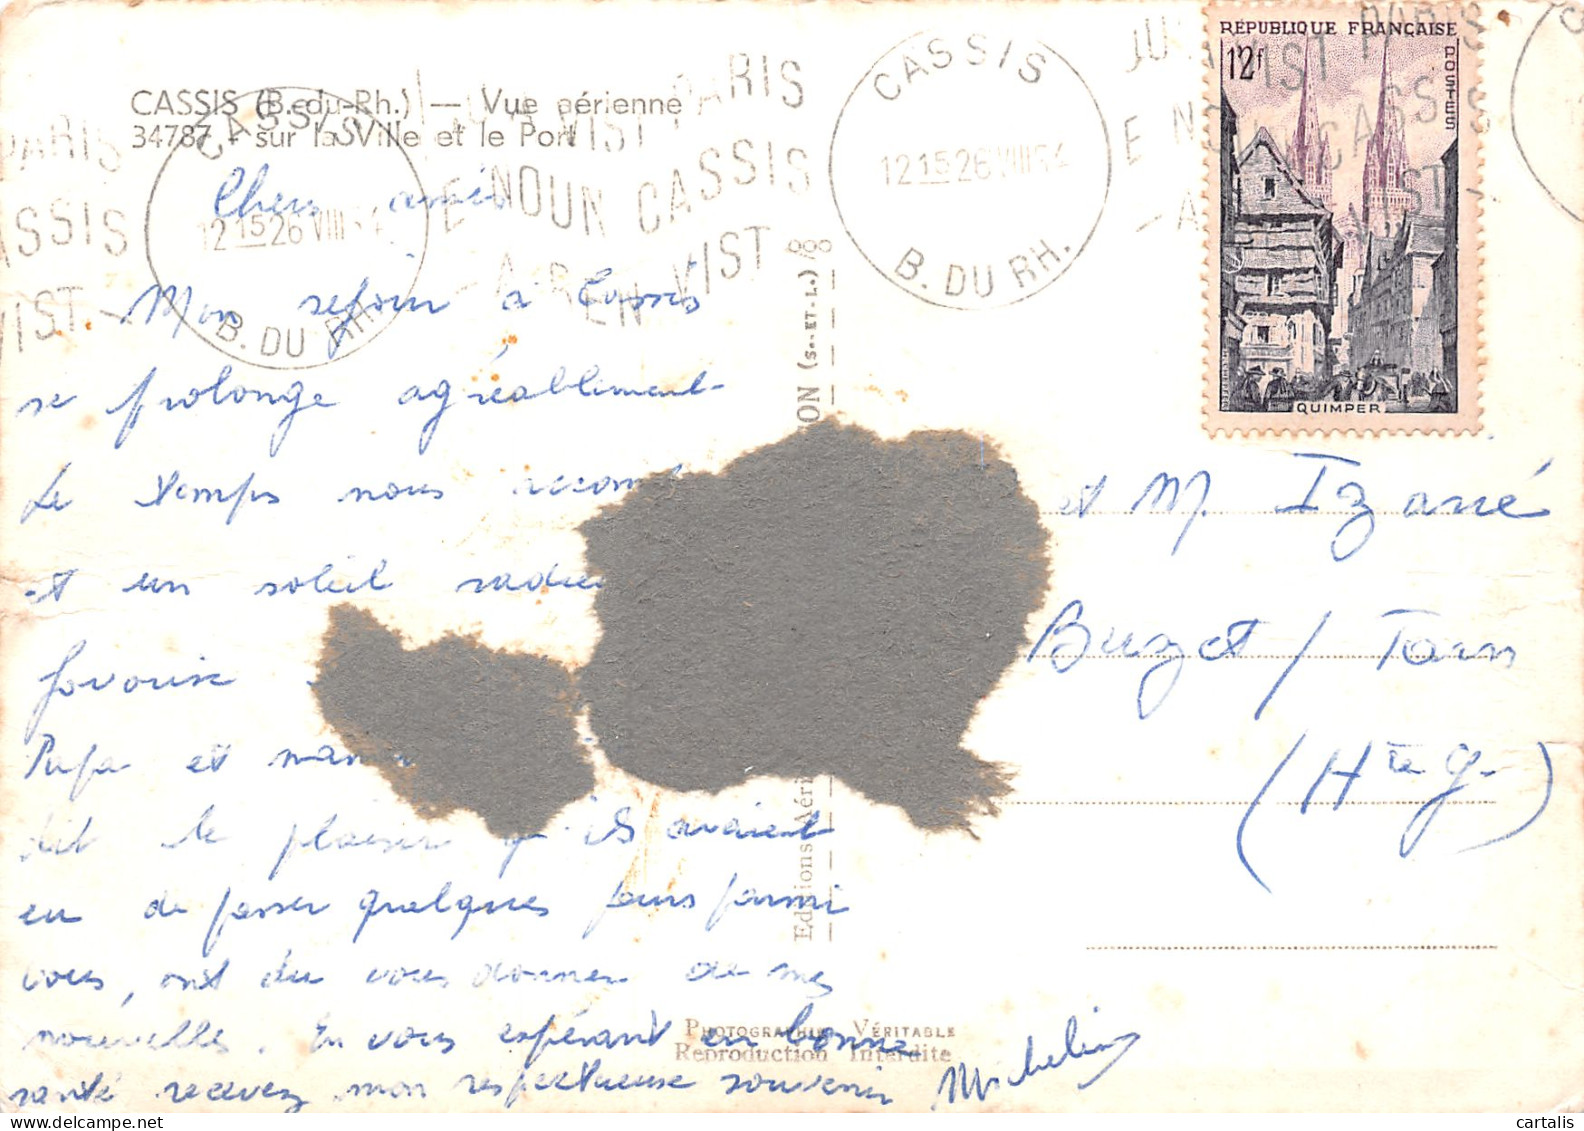 CASSIS (B.-du-Rh.) — Vue aérienne
34787 - sur la Ville et le Port
Chers amis
Mon séjour à Cassis
se prolonge agréablement
Le temps nous
et un soleil
favorise
Papa et
dit le plaisir qu'ils avaient
eu de passer quelques jours parmi
vous, ont du vous donner de mes
nouvelles. En vous espérant en bonne
santé recevez mon respectueuse souvenir
Micheline
CASSIS
12 15 26 VIII 54
B. DU RH.
CASSIS
12 15 26 VIII 54
B. DU RH.
PARIS
E NOUN CASSIS
A REN VIST
RÉPUBLIQUE FRANÇAISE
12f
POSTES
QUIMPER
et M. Izarié
Buzet / Tarn
(Hte G.)
ON (S.-ET-L.)
Editions Aéri
PHOTOGRAPHIE VÉRITABLE
Reproduction Interdite
cartalis